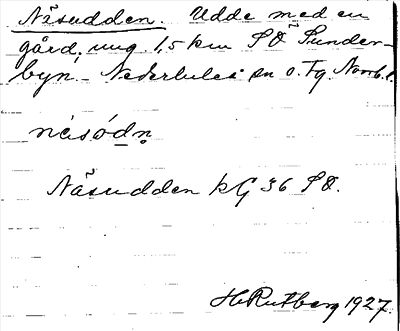 Näsudden. Udde med en
gård, ung. 1,5 km SÖ Sunder-
byn. – Nederluleå sn o. Tg, Norrb. l.
nèsódn̥
Näsudden kG 36 SÖ.
H. Rutberg 1927.